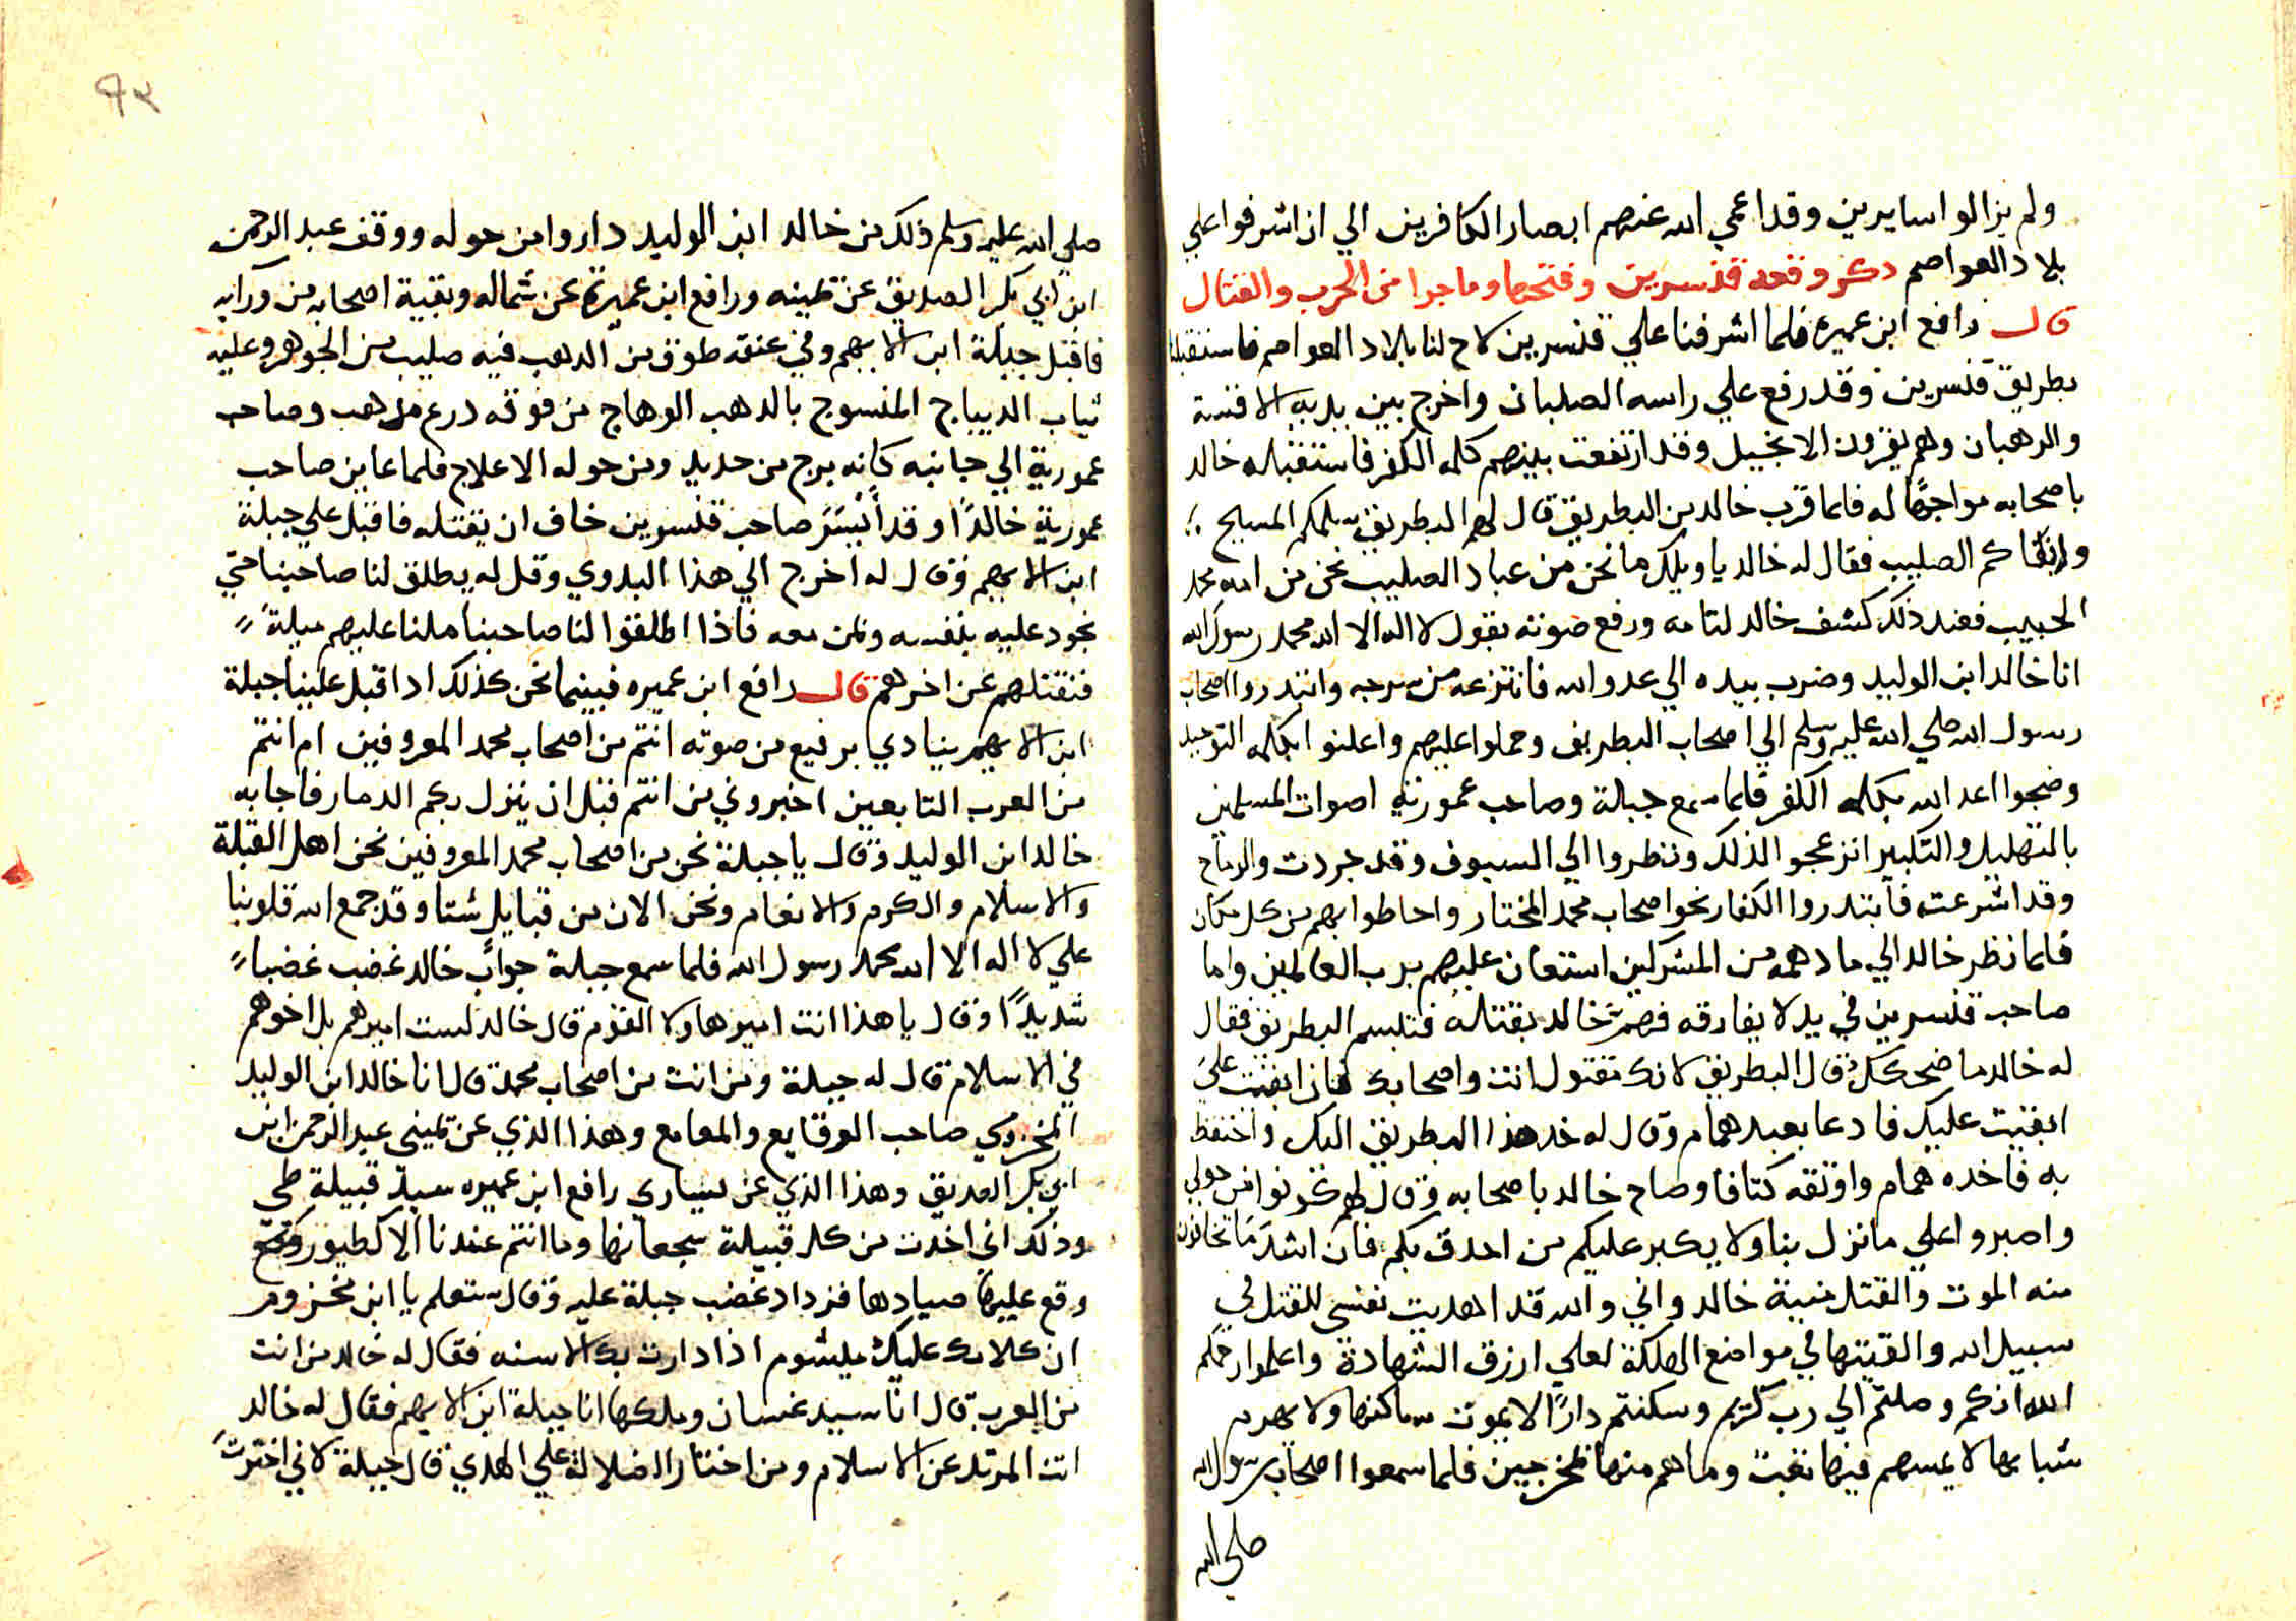 ولم يزالوا سايرين وقد اعمي الله عنهم ابصار الكافرين الي ان اشرفوا علي
بلاد العواصم ذكر وقعة قنسرين وفتحها وما جرا من الحرب والقتال
قال رافع ابن عميره فلما اشرفنا علي قنسرين لاح لنا بلاد العواصم فاستقبلنا
بطريق قنسرين وقد رفع علي راسه الصلبان واخرج بين يديه الاقسة
والرهبان وهم يقرون الانجيل وقد ارتفعت بينهم كلمه الكفر فاستقبله خالد
باصحابه مواجهًا له فلما قرب خالد من البطريق قال لهم البطريق سلمكم المسيح
وابقاكم الصليب فقال له خالد ياويلك ما نحن من عباد الصليب نحن من امه محمد
الحبيب فعند ذلك كشف خالد لثامه ورفع صوته بقول لا اله الا الله محمد رسول الله
انا خالد ابن الوليد وضرب بيده الي عدو الله فانتزعه من سرجه وابتدروا اصحاب
رسول الله صلي الله عليه وسلم الي اصحاب البطريق وحملوا عليهم واعلنوا بكلمه التوحيد
وضجوا اعدا الله بكلمه الكفر فلما سمع جبلة وصاحب عمورية اصوات المسلمين
بالتهليل والتكبير انزعجوا لذلك ونظروا الي السيوف وقد جردت والرماح
وقد اشرعت فابتدروا الكفار نحو اصحاب محمد المختار واحاطوا بهم من كل مكان
فلما نظر خالد الي ما دهمه من المشركين استعان عليهم برب العالمين واما
صاحب قنسرين في يد لا يفارقه فهم خالد بقتله فتبسم البطريق فقال
له خالد ما ضحكك قال البطريق لانك مقتول انت واصحابك فان ابقيت علي
ابقيت عليك فادعا بعبد همام وقال له خد هذا البطريق اليك واحتفظ
به فاخده همام واوثقه كتافا وصاح خالد باصحابه وقال لهم كونوا من حولي
واصبروا علي ما نزل بنا ولا يكبر عليكم من احدق بكم فان اشد ما تخافون
منه الموت والقتل منية خالد واني والله قد اهديت نفسي للقتل في
سبيل الله والقيتها في مواضع الهلكة لعلي ارزق الشهادة واعلموا رحمكم
الله انكم وصلتم الي رب كريم وسكنتم دارًا لا يموت ساكنها ولا يهرم
شبابها لا يمسهم فيها نصب وما هم منها بمخرجين فلما سمعوا اصحاب رسول الله
صلي الله
صلي الله عليه وسلم ذلك من خالد ابن الوليد داروا من حوله ووقف عبد الرحمن
ابن ابي بكر الصديق عن يمينه ورافع ابن عميرة عن شماله وبقية اصحابه من ورايه
فاقبل جبلة ابن الايهم وفي عنقه طوق من الدهب فيه صليب من الجوهر وعليه
تياب الديباج المنسوج بالدهب الوهاج من فوقه درع مذهب وصاحب
عمورية الي جانبه كانه برج من حديد ومن حوله الاعلاج فلما عاين صاحب
عمورية خالدًا وقد أيسر صاحب قنسرين خاف ان يقتله فاقبل علي جبلة
ابن الايهم وقال له اخرج الي هذا البدوي وقل له يطلق لنا صاحبنا حتي
نجود عليه بنفسه وبمن معه فاذا اطلقوا لنا صاحبنا ملنا عليهم ميلةً
فنقتلهم عن اخرهم قال رافع ابن عميره فبينما نحن كذلك ادا قبل علينا جبلة
ابن الايهم ينادي برفيع من صوته انتم من اصحاب محمد المعروفين ام انتم
من العرب التابعين اخبروني من انتم قبل ان ينزل بكم الدمار فاجابه
خالد ابن الوليد وقال يا جبلة نحن من اصحاب محمد المعروفين نحن اهل القبلة
والاسلام والكرم والانعام ونحن الان من قبايل شتا وقد جمع الله قلوبنا
علي لا اله الا الله محمد رسول الله فلما سمع جبلة جواب خالد غضب غضباً
شديدًا وقال يا هذا انت امير هاولا القوم قال خالد لست اميرهم بل اخوهم
في الاسلام قال له جبلة ومن انت من اصحاب محمد قال انا خالد ابن الوليد
المخزومي صاحب الوقايع والمعامع وهذا الذي عن يميني عبد الرحمن ابن
ابي بكر الصديق وهذا الذي عن يساري رافع ابن عميره سيد قبيلة طي
وذلك اني اخدت من كل قبيلة شجعانها وما انتم عندنا الا كطيور
وقع عليها صيادها فزداد غضب جبلة عليه وقال ستعلم يا ابن مخزوم
ان كلامك عليك ميشوم اذا دارت بك الاسنه فقال له خالد من انت
من العرب قال انا سيد غسان وملكها انا جبلة ابن الايهم فقال له خالد
انت المرتد عن الاسلام ومن اختار الضلالة علي الهدي قال جبلة لاني اخترت